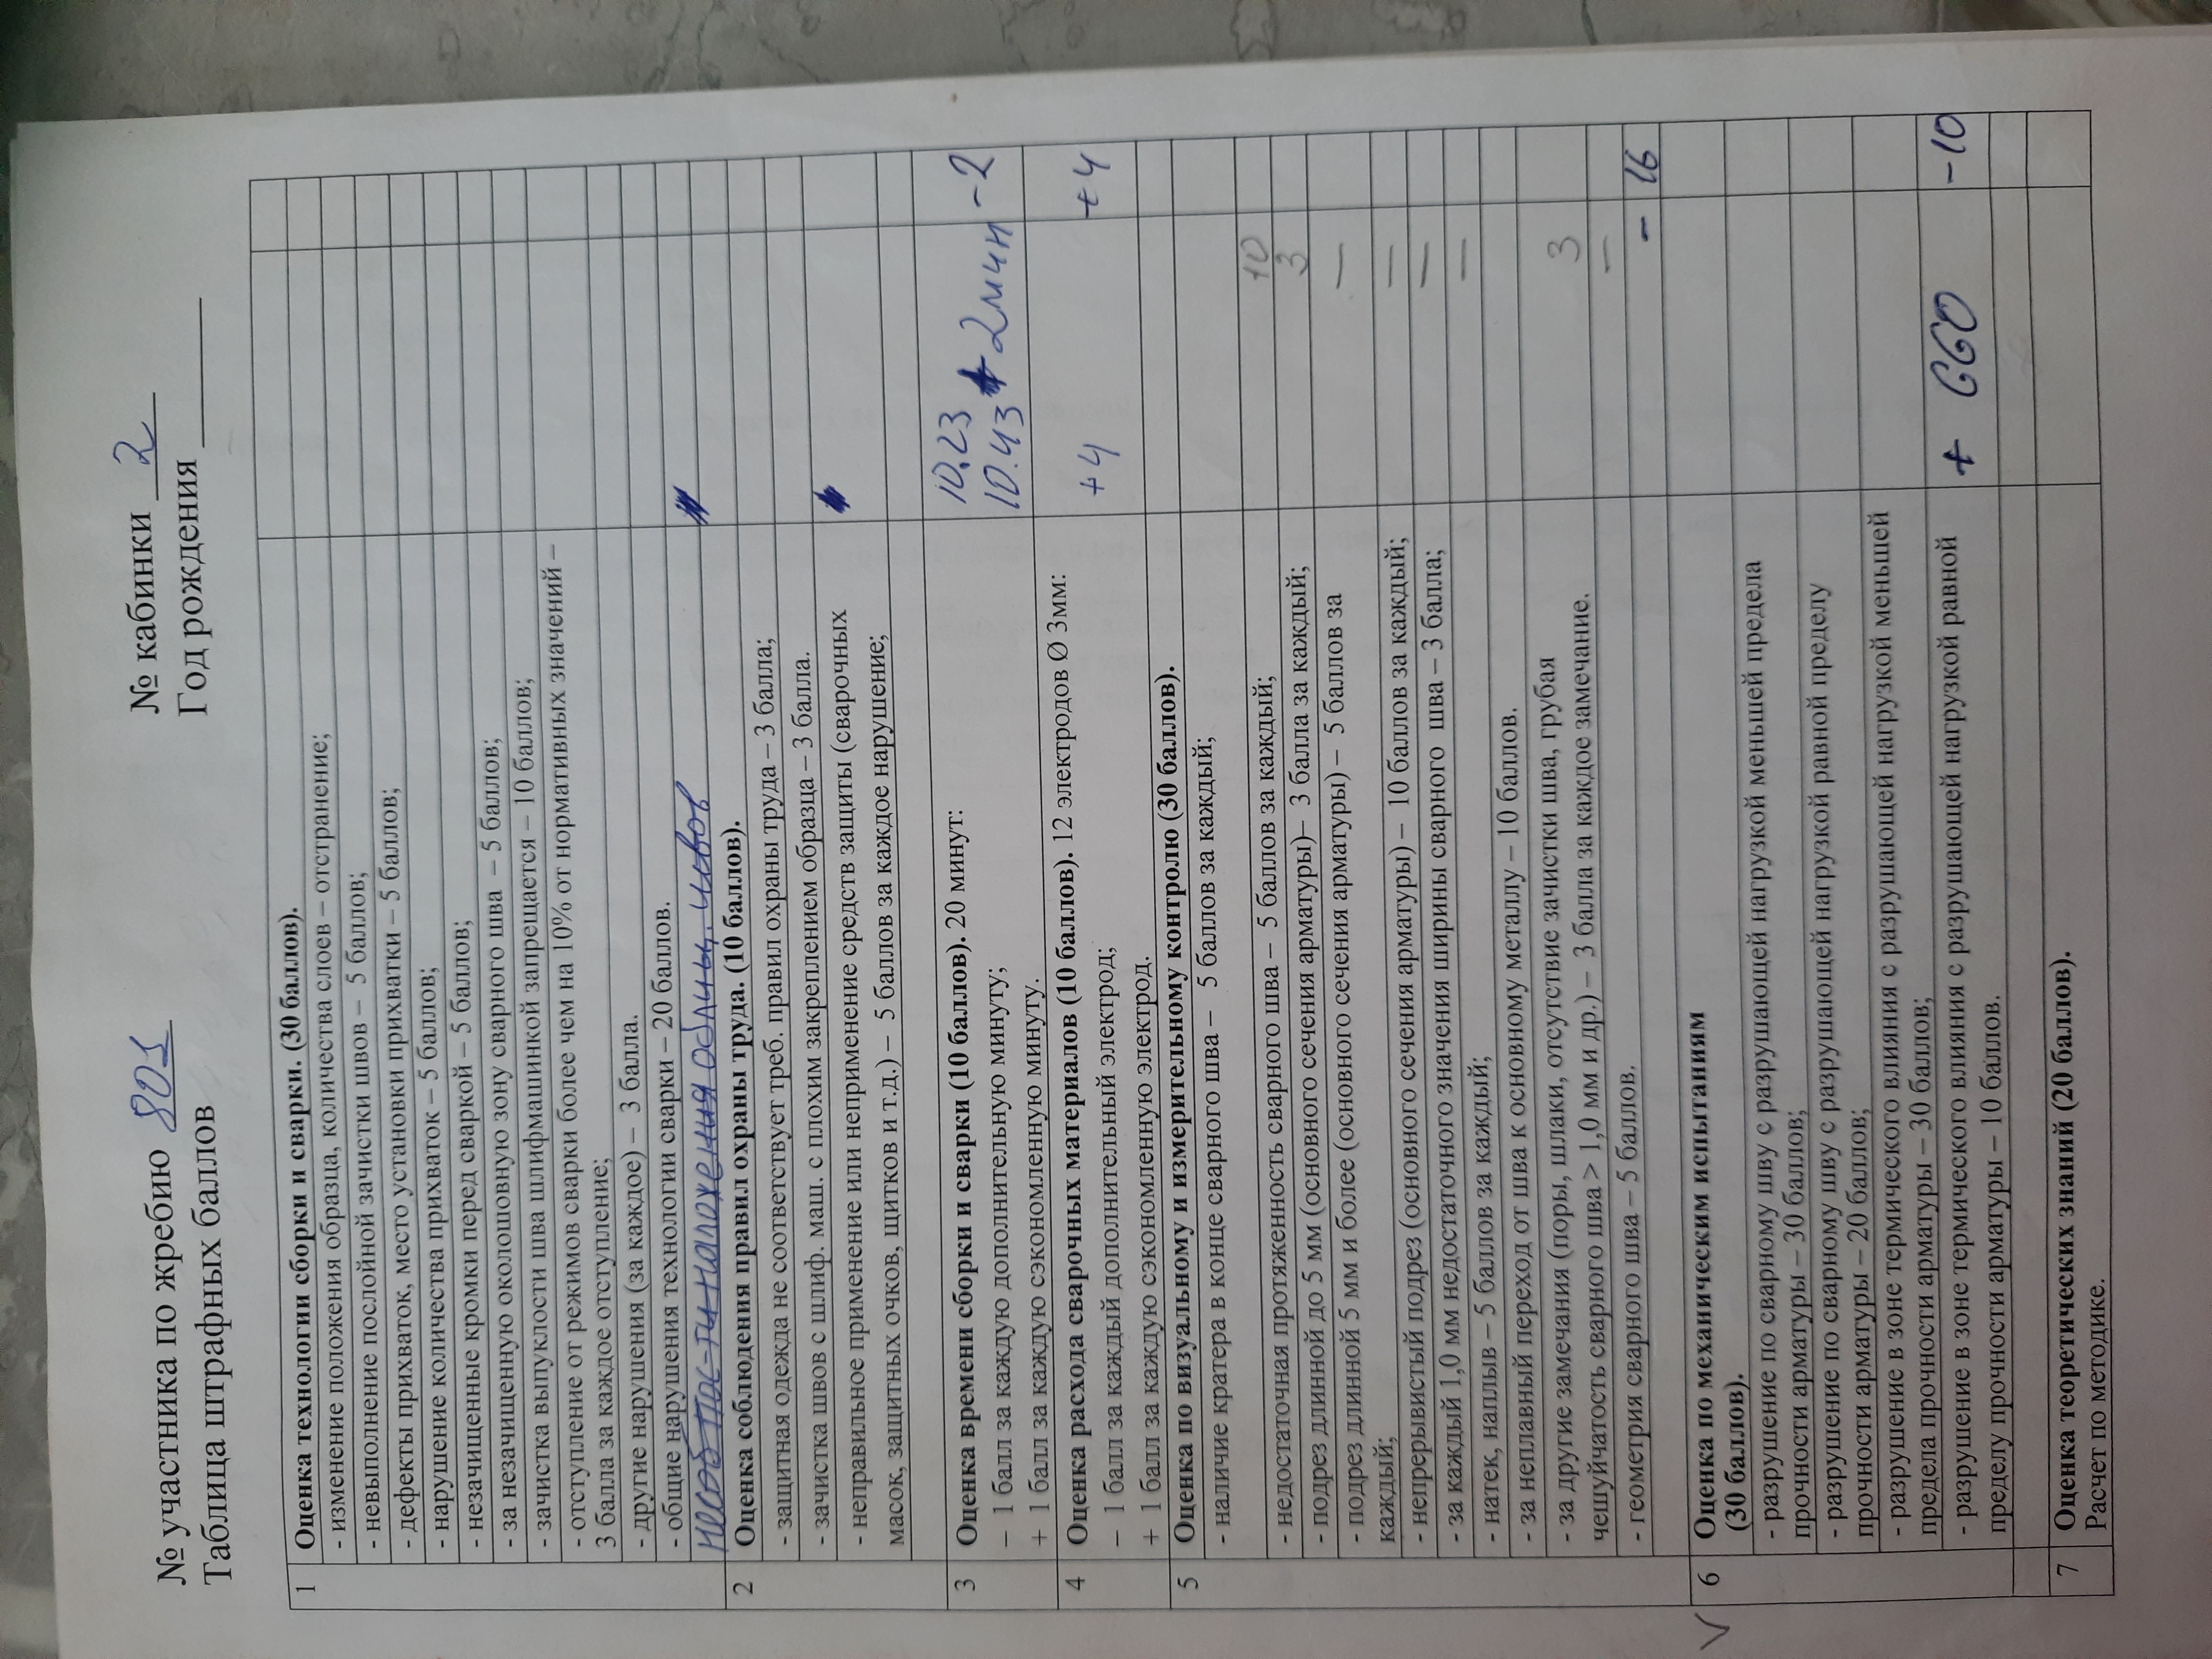 № участника по жребию 801
№ кабинки 2
Таблица штрафных баллов
Год рождения
1 Оценка технологии сборки и сварки. (30 баллов).
- изменение положения образца, количества слоев – отстранение;
- невыполнение послойной зачистки швов – 5 баллов;
- дефекты прихваток, место установки прихватки – 5 баллов;
- нарушение количества прихваток – 5 баллов;
- незачищенные кромки перед сваркой – 5 баллов;
- за незачищенную околошовную зону сварного шва – 5 баллов;
- зачистка выпуклости шва шлифмашинкой запрещается – 10 баллов;
- отступление от режимов сварки более чем на 10% от нормативных значений –
3 балла за каждое отступление;
- другие нарушения (за каждое) – 3 балла.
- общие нарушения технологии сварки – 20 баллов.
несоб пос-ти наложения облиц. швов
2 Оценка соблюдения правил охраны труда. (10 баллов).
- защитная одежда не соответствует треб. правил охраны труда – 3 балла;
- зачистка швов с шлиф. маш. с плохим закреплением образца – 3 балла.
- неправильное применение или неприменение средств защиты (сварочных
масок, защитных очков, щитков и т.д.) – 5 баллов за каждое нарушение;
3 Оценка времени сборки и сварки (10 баллов). 20 минут: 10.23
– 1 балл за каждую дополнительную минуту; 10.43 + 2 мин -2
+ 1 балл за каждую сэкономленную минуту.
4 Оценка расхода сварочных материалов (10 баллов). 12 электродов Ø 3мм:
– 1 балл за каждый дополнительный электрод; +4 +4
+ 1 балл за каждую сэкономленную электрод.
5 Оценка по визуальному и измерительному контролю (30 баллов).
- наличие кратера в конце сварного шва – 5 баллов за каждый;
- недостаточная протяженность сварного шва – 5 баллов за каждый; 10
- подрез длинной до 5 мм (основного сечения арматуры)– 3 балла за каждый; 3
- подрез длинной 5 мм и более (основного сечения арматуры) – 5 баллов за —
каждый;
- непрерывистый подрез (основного сечения арматуры) – 10 баллов за каждый; —
- за каждый 1,0 мм недостаточного значения ширины сварного шва – 3 балла; —
- натек, наплыв – 5 баллов за каждый; —
- за неплавный переход от шва к основному металлу – 10 баллов.
- за другие замечания (поры, шлаки, отсутствие зачистки шва, грубая
чешуйчатость сварного шва > 1,0 мм и др.) – 3 балла за каждое замечание. 3
- геометрия сварного шва – 5 баллов. —
- 16
V 6 Оценка по механическим испытаниям
(30 баллов).
- разрушение по сварному шву с разрушающей нагрузкой меньшей предела
прочности арматуры – 30 баллов;
- разрушение по сварному шву с разрушающей нагрузкой равной пределу
прочности арматуры – 20 баллов;
- разрушение в зоне термического влияния с разрушающей нагрузкой меньшей
предела прочности арматуры – 30 баллов;
- разрушение в зоне термического влияния с разрушающей нагрузкой равной + 660 -10
пределу прочности арматуры – 10 баллов.
7 Оценка теоретических знаний (20 баллов).
Расчет по методике.